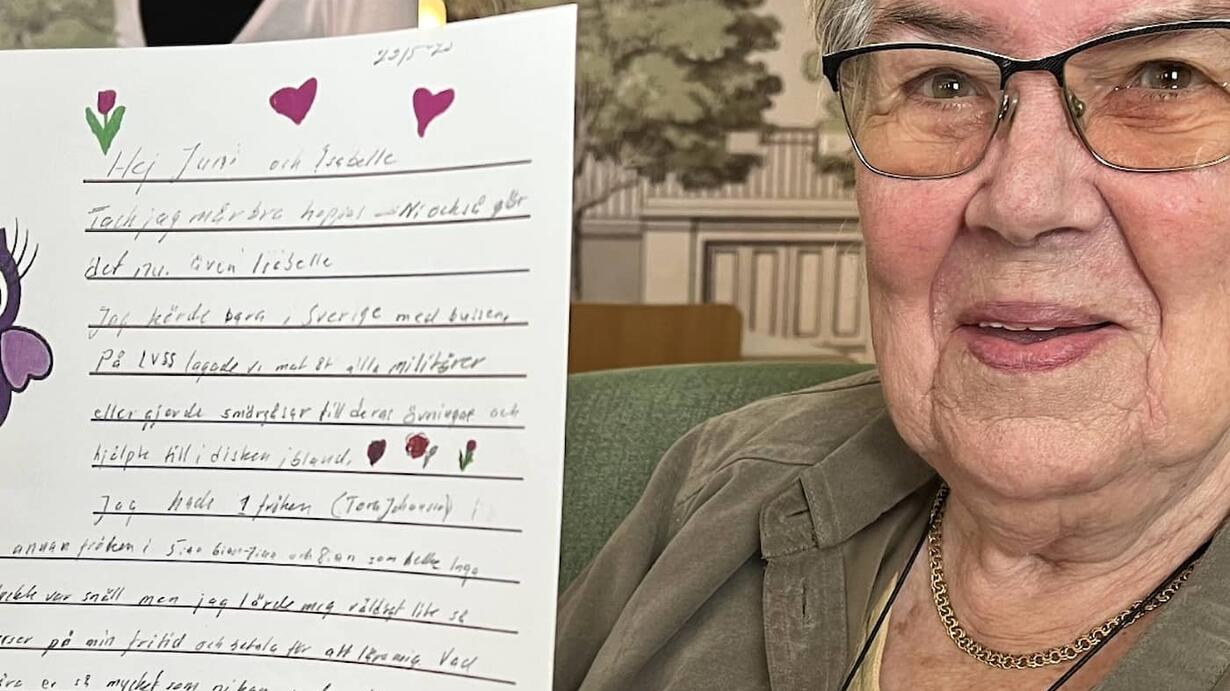 23/5-20
Hej Juni och Isabelle
Tack jag mår bra hoppas Ni också gör
det nu. även Isabelle
Jag körde bara i Sverige med bussen,
På LVSS lagade vi mat åt alla militärer
eller gjorde smörgåsar till deras övningar och
hjälpte till i disken ibland,
Jag hade 1 fröken (Tora Johansson) i
annan fröken i 5:an 6:an-7:an och 8:an som hette Inga
var snäll men jag lärde mig väldigt lite så
på min fritid och betala för att lära mig Vad
är så mycket som ni kan